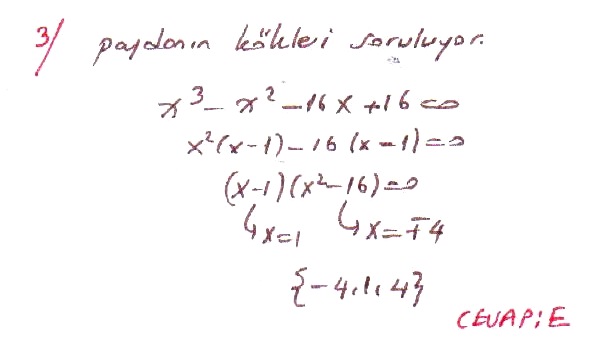 3/ paydanın kökleri soruluyor.
x³ - x² - 16x + 16 = 0
x²(x-1) - 16(x-1) = 0
(x-1)(x²-16) = 0
↳x=1 ↳x=∓4
{-4,1,4}
CEVAP: E